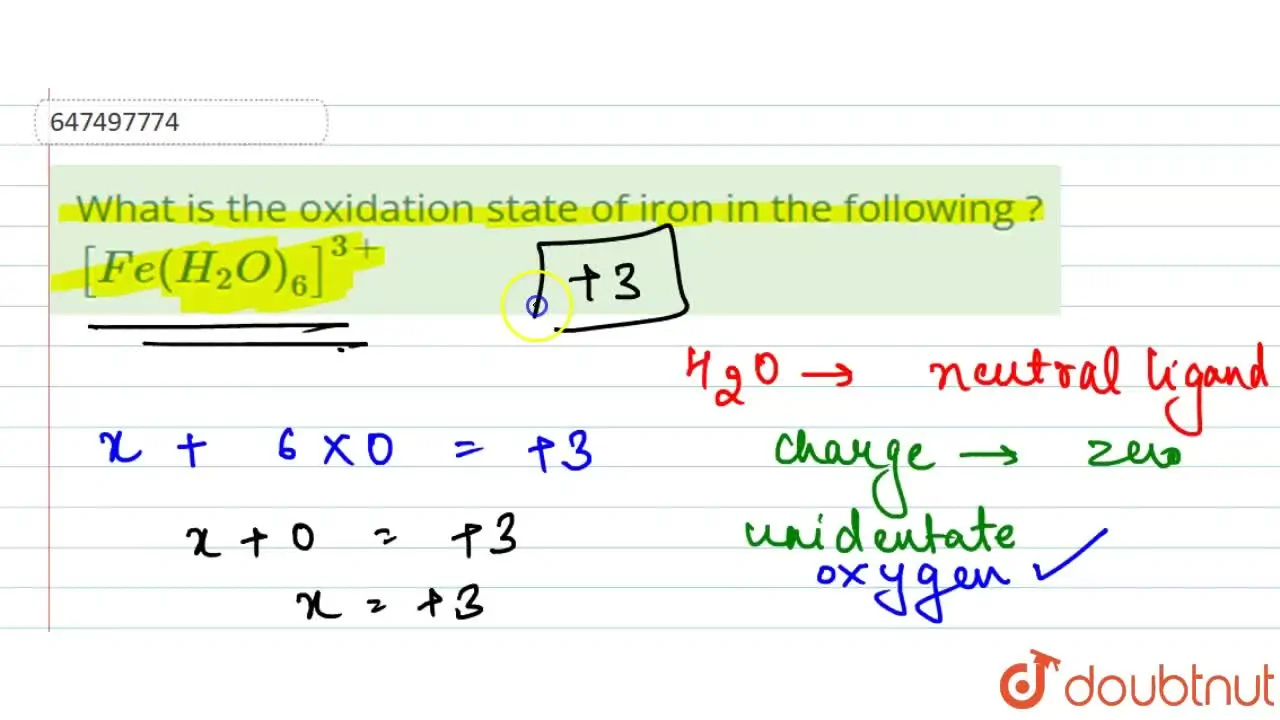 647497774
What is the oxidation state of iron in the following ?
[Fe(H₂O)₆]³⁺
+3
H₂O → neutral ligand
x + 6 × 0 = +3
charge → zero
x + 0 = +3
unidentate
oxygen ✓
x = +3
doubtnut